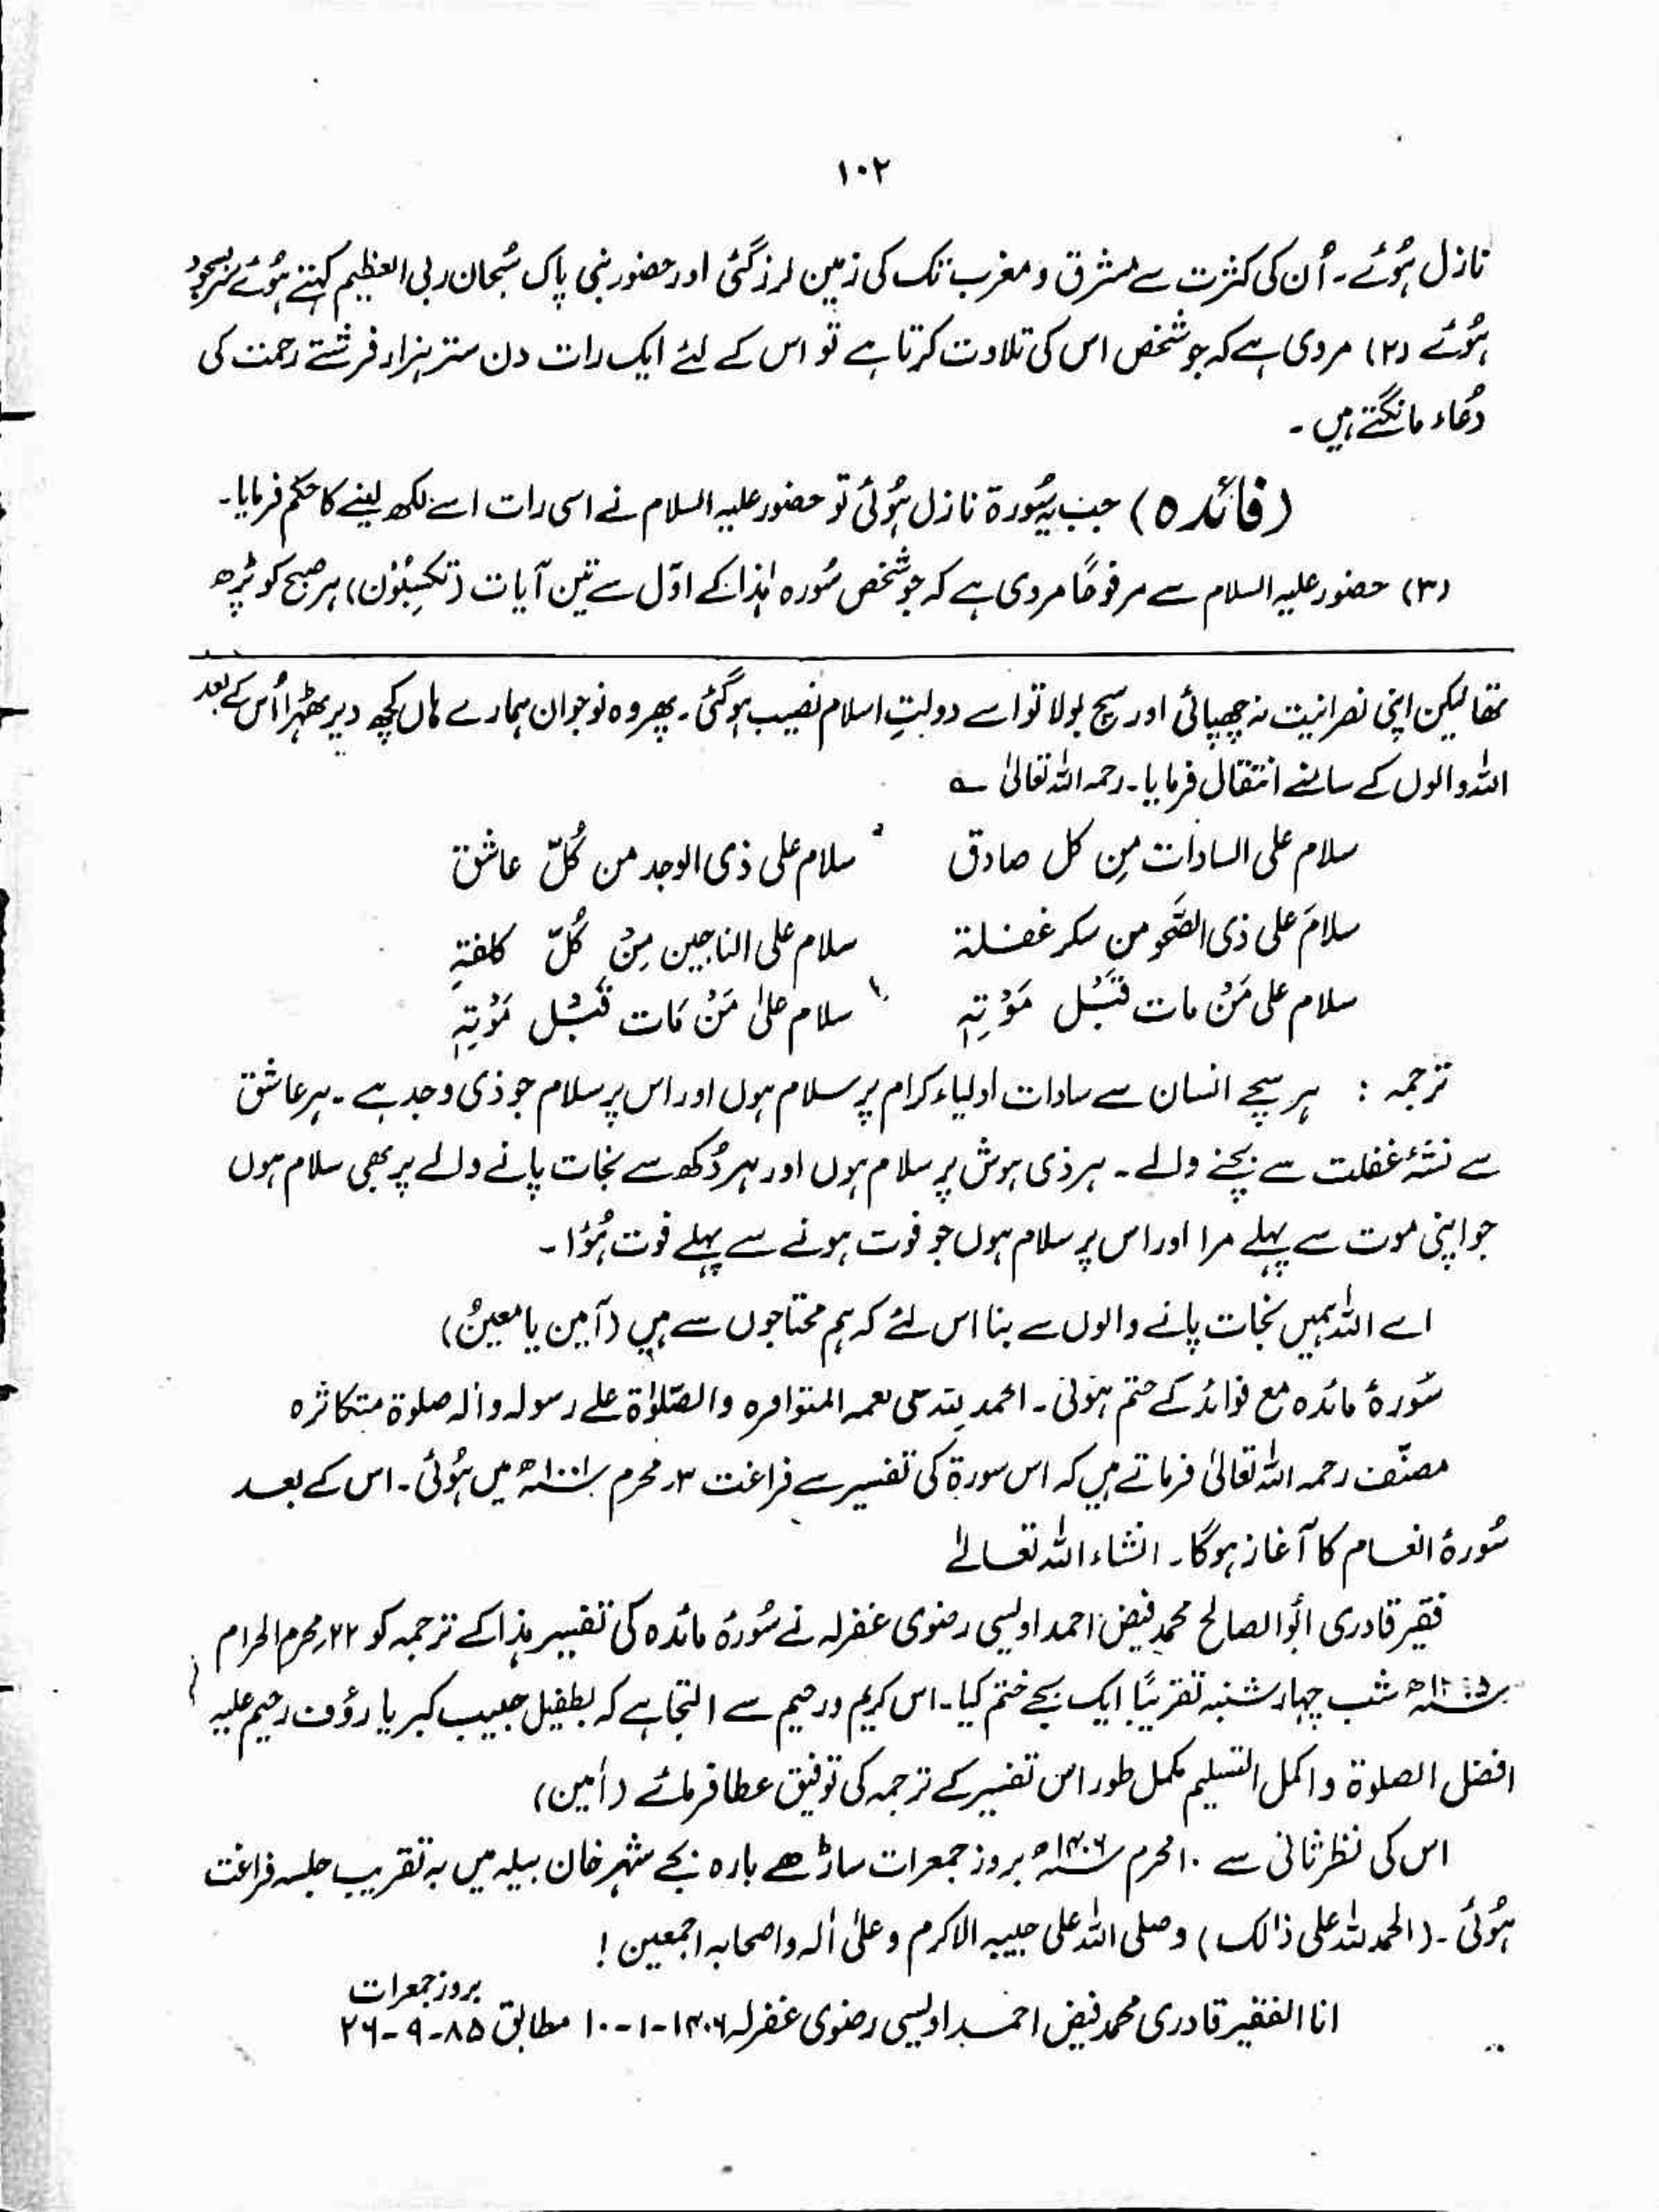 ۱۰۲
نازل ہُوئے۔ اُن کی کثرت سے مشرق و مغرب تک کی زمین لرز گئی اور حضور نبی پاک سُبحان ربی العظیم کہتے ہُوئے سربسجود
ہُوئے (۲) مروی ہے کہ جو شخص اس کی تلاوت کرتا ہے تو اس کے لئے ایک رات دن ستر ہزار فرشتے رحمت کی
دُعاء مانگتے ہیں۔
(فائدہ) جب یہ سُورۃ نازل ہُوئی تو حضور علیہ السلام نے اسی رات اسے لکھ لینے کا حکم فرمایا۔
(۳) حضور علیہ السلام سے مرفوعًا مروی ہے کہ جو شخص سُورہ ہٰذا کے اوّل سے تین آیات (تکسِبُوْن) ہر صبح کو پڑھ
تھا لیکن اپنی نصرانیت نہ چھپائی اور سچ بولا تو اسے دولتِ اسلام نصیب ہو گئی۔ پھر وہ نوجوان ہمارے ہاں کچھ دیر ٹھہرا اُس کے بعد
اللہ والوں کے سامنے انتقال فرمایا۔ رحمہ اللہ تعالیٰ ؎
سلام علی السادات مِن کل صادق سلام علی ذی الوجد من کُلّ عاشق
سلامَ علی ذی الصَّحو من سکر غفلۃ سلام علی الناجین مِنْ کُلّ کلفۃٍ
سلام علی مَنْ مات قَبْل مَوْتِہٖ سلام علیٰ مَنْ مَات قَبْل مَوْتِہٖ
ترجمہ : ہر سچے انسان سے سادات اولیاء کرام پر سلام ہوں اور اس پر سلام جو ذی وجد ہے۔ ہر عاشق
سے نشۂ غفلت سے بچنے والے۔ ہر ذی ہوش پر سلام ہوں اور ہر دُکھ سے نجات پانے والے پر بھی سلام ہوں
جو اپنی موت سے پہلے مرا اور اس پر سلام ہوں جو فوت ہونے سے پہلے فوت ہُؤا۔
اے اللہ ہمیں نجات پانے والوں سے بنا اس لئے کہ ہم محتاجوں سے ہیں (آمین یا معینُ)
سُورۂ مائدہ مع فوائد کے ختم ہوئی۔ الحمد للہ علی نعمہ المتوافرہ والصّلوٰۃ علے رسولہ واٰلہ صلوۃ متکاثرہ
مصنّف رحمہ اللہ تعالیٰ فرماتے ہیں کہ اس سورۃ کی تفسیر سے فراغت ۳ محرم ۱۱۰۰ھ میں ہُوئی۔ اس کے بعد
سُورۂ انعام کا آغاز ہوگا۔ انشاء اللہ تعالےٰ
فقیر قادری ابُوالصالح محمد فیض احمد اویسی رضوی غفرلہ نے سُورۂ مائدہ کی تفسیر ہذا کے ترجمہ کو ۲۲ محرم الحرام
شب چہار شنبہ تقریبًا ایک بجے ختم کیا۔ اس کریم و رحیم سے التجا ہے کہ بطفیل حبیب کبریا رؤف رحیم علیہ
افضل الصلوۃ و اکمل التسلیم مکمل طور اس تفسیر کے ترجمہ کی توفیق عطا فرمائے (اٰمین)
اس کی نظر ثانی سے ۱۰ محرم ۱۴۰۶ھ بروز جمعرات ساڑھے بارہ بجے شہر خان بیلہ میں بہ تقریب جلسہ فراغت
ہُوئی۔ (الحمد للہ علی ذالک) وصلی اللہ علی حبیبہ الاکرم وعلیٰ اٰلہ واصحابہ اجمعین !
بروز جمعرات
انا الفقیر قادری محمد فیض احمد اویسی رضوی غفرلہ ۱۴۰۶-۱-۱۰ مطابق ۸۵-۹-۲۶